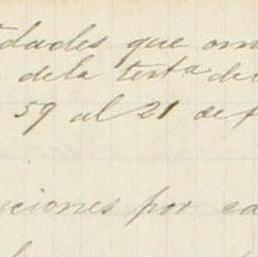 idades que om
dela testª de
59 al 21 de f
iciones por ca